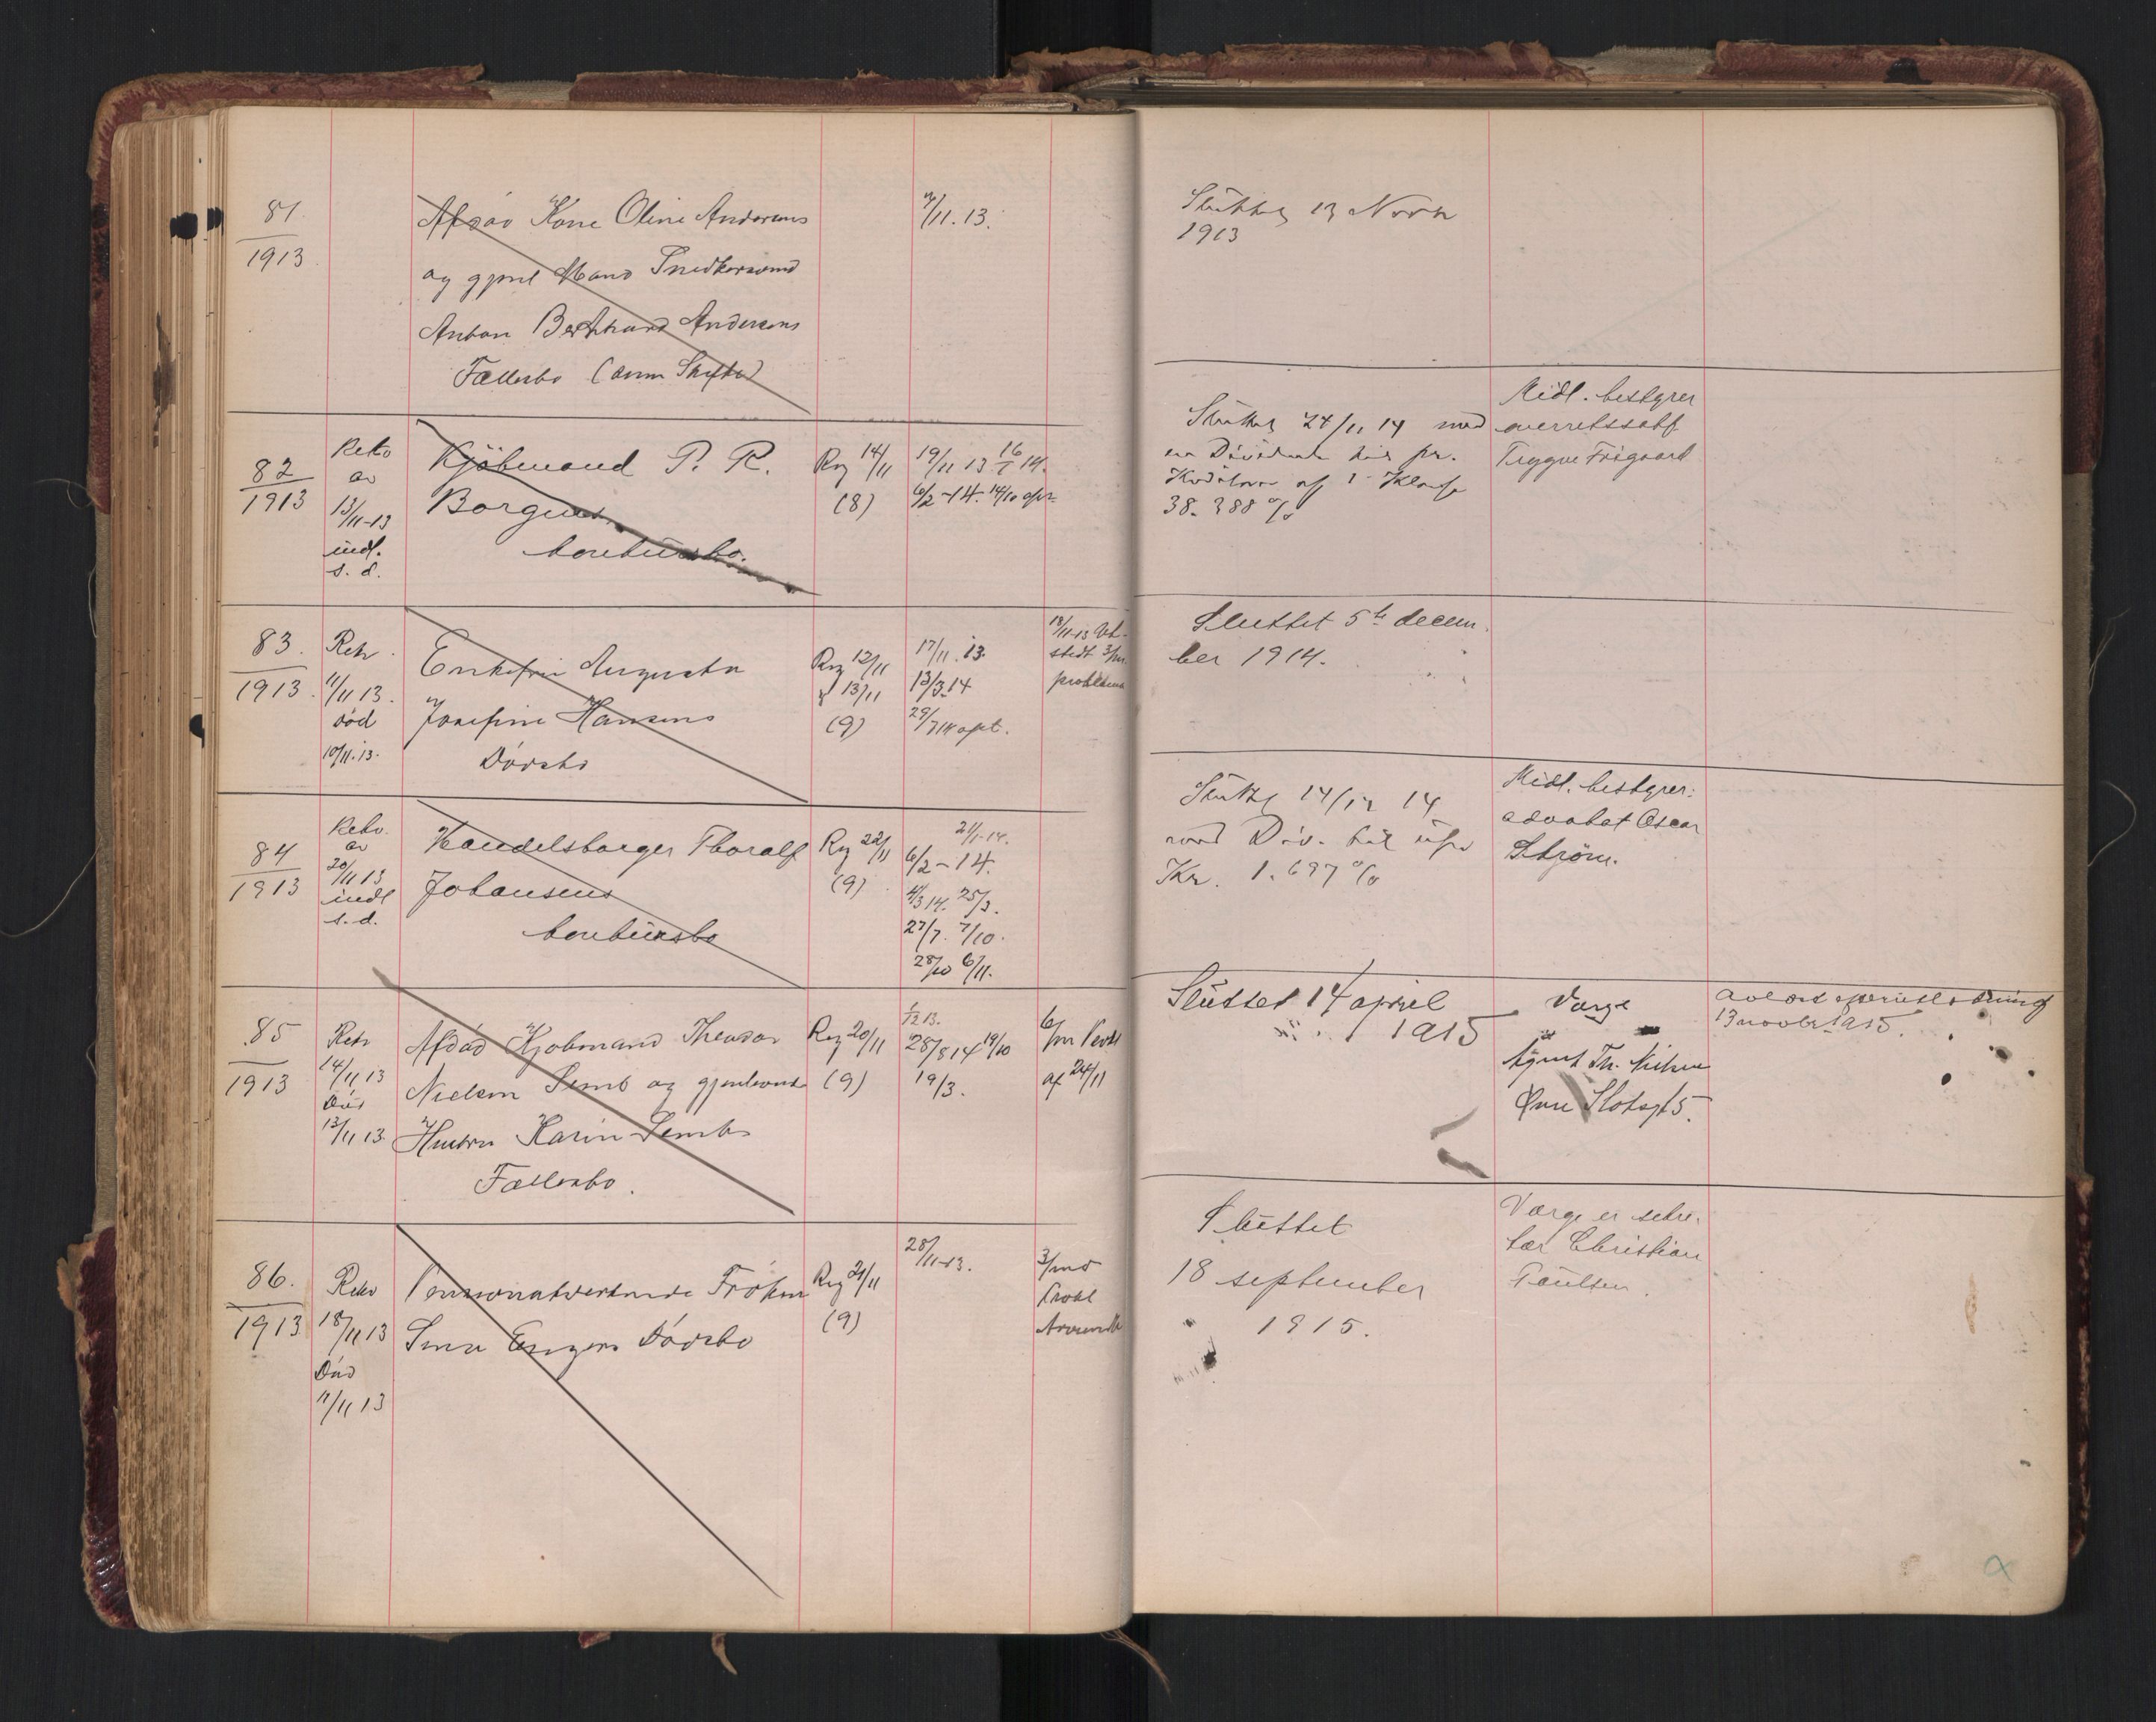 81
1913
Afdød Kone Oline Andersens
og gjenl Mand Snedkersvend
Anton Berntsens Andersens
Fællesbo (Skifte)
7/11. 13.
Sluttet 13 Novbr
1913
82
1913
Rekv
av
13/11-13
indl.
s. d.
Kjöbmand P. R.
Borgens
konkursbo.
Rg 14/11
(8)
19/11 13 16/1 14.
6/2-14. 14/10
Sluttet 24/11 14 med
en Dividende til pr.
Kreditorer af 1 Klasse
38.388 %
Midl. bestyrer
overretssakf.
Trygve Friigaard
83.
1913.
Rekv.
11/11 13.
død
10/11.13.
Enkefru Augusta
Josefine Hansens
Dødsbo
Rg 12/11
& 13/11
(9)
17/11.13.
13/3.14
29/7 14 opt.
18/11-13
3/m.
proklama
Sluttet 5te decem-
ber 1914.
84
1913
Rekv.
av
20/11 13
indl
s. d.
Handelsborger Thoralf
Johansens
konkursbo
Rg 22/11
(9)
21/1-14.
6/2-14.
4/3 14. 25/3.
27/7. 7/10.
28/10 6/11.
Sluttet 14/12 14
med Div. til
Kr. 1.697 %
Midl. bestyrer:
advokat Oscar
Ström.
85
1913
Rekv
14/11 13
Død
13/11 13.
Afdød Kjøbmand Theodor
Nielsen Semb og gjenlevende
Hustru Karin Sembs
Fællesbo.
Rg 20/11
(9)
1/12 13.
28/8 14 19/10
19/3.
6/m
af 24/11
Sluttet 14 april
1915
Værge
Agent Th.
Øvre Slotsgt 5.
13 novbr 1915.
86.
1913
Rekv
18/11 13
Død
11/11 13
Pensionatværtinde Frøken
Engers Dødsbo
Rg 21/11
(9)
28/11-13.
3/mds
Prokl
Sluttet
18 september
1915.
Værge er sekre-
tær Christian
Poulsen.